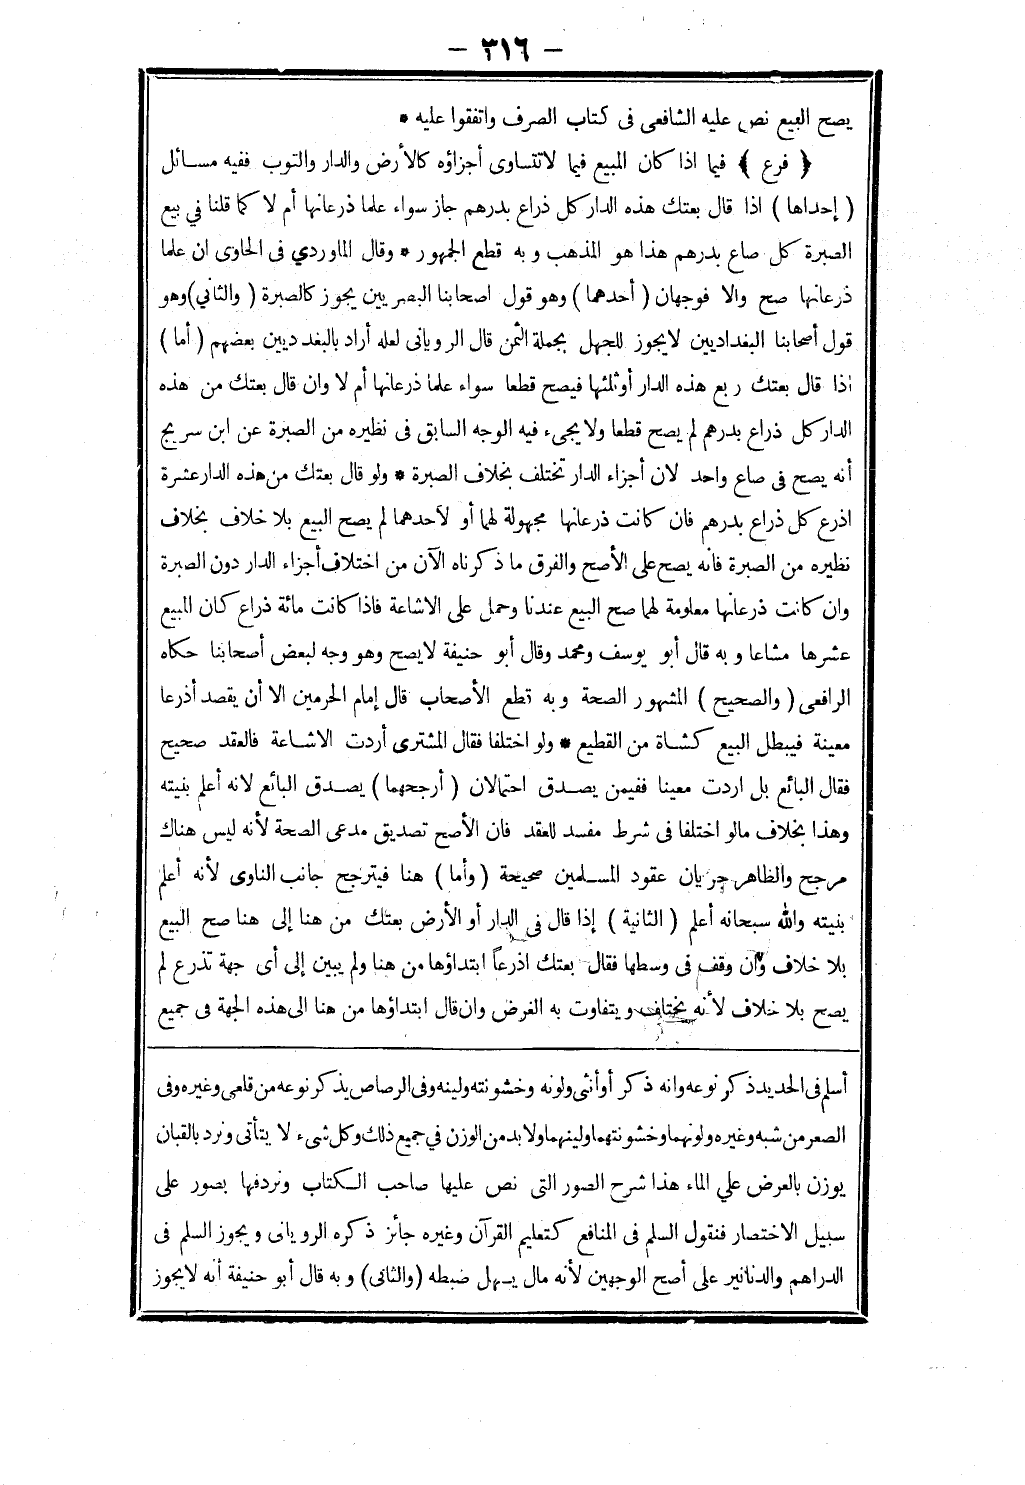 — ٣١٦ —
يصح البيع نص عليه الشافعى فى كتاب الصرف واتفقوا عليه *
﴿ فرع ﴾ فيما اذا كان المبيع فيما لاتتساوى أجزاؤه كالأرض والدار والتوب ففيه مسـائل
( إحداها ) اذا قال بعتك هذه الدار كل ذراع بدرهم جاز سواء علما ذرعانها أم لا كما قلنا في بيع
الصبرة كل صاع بدرهم هذا هو المذهب و به قطع الجمهور * وقال الماوردي فى الحاوى ان علما
ذرعانها صح والا فوجهان ( أحدهما ) وهو قول اصحابنا البصريين يجوز كالصبرة ( والثاني ) وهو
قول أصحابنا البغداديين لايجوز للجهل بجملة الثمن قال الرويانى لعله أراد بالبغدديين بعضهم ( أما )
اذا قال بعتك ربع هذه الدار أوثلثها فيصح قطعا سواء علما ذرعانها أم لا وان قال بعتك من هذه
الدار كل ذراع بدرهم لم يصح قطعا ولايجىء فيه الوجه السابق فى نظيره من الصبرة عن ابن سريج
أنه يصح فى صاع واحد لان أجزاء الدار تختلف بخلاف الصبرة * ولو قال بعتك من هذه الدار عشرة
اذرع كل ذراع بدرهم فان كانت ذرعانها مجهولة لهما أو لأحدهما لم يصح البيع بلا خلاف بخلاف
نظيره من الصبرة فانه يصح على الأصح والفرق ما ذكرناه الآن من اختلاف أجزاء الدار دون الصبرة
وان كانت ذرعانها معلومة لهما صح البيع عندنا وحمل على الاشاعة فاذا كانت مائة ذراع كان المبيع
عشرها مشاعا و به قال أبو يوسف ومحمد وقال أبو حنيفة لايصح وهو وجه لبعض أصحابنا حكاه
الرافعى ( والصحيح ) المشهور الصحة وبه قطع الأصحاب قال إمام الحرمين الا أن يقصد أذرعا
معينة فيبطل البيع كشـاة من القطيع * ولو اختلفا فقال المشترى أردت الاشاعة فالعقد صحيح
فقال البائع بل اردت معينا ففيمن يصـدق احتمالان ( أرجحهما ) يصـدق البائع لانه أعلم بنيته
وهذا بخلاف مالو اختلفا فى شرط مفسد للعقد فان الأصح تصديق مدعى الصحة لأنه ليس هناك
مرجح والظاهر جريان عقود المسـلمين صحيحة ( وأما ) هنا فيترجح جانب الناوى لأنه أعلم
بنيته والله سبحانه أعلم ( الثانية ) إذا قال فى الدار أو الأرض بعتك من هنا إلى هنا صح البيع
بلا خلاف وان وقف فى وسطها فقال بعتك اذرعاً ابتداؤها من هنا ولم يبين إلى أى جهة تذرع لم
يصح بلا خلاف لأنه يختلف و يتفاوت به الغرض وان قال ابتداؤها من هنا الى هذه الجهة فى جميع
أسلم فى الحديد ذكر نوعه وانه ذكر أو أنثى ولونه وخشونته ولينه وفى الرصاص يذكر نوعه من قلعى وغيره وفى
الصعر من شبه وغيره ولونهما وخشونتهما ولينهما ولابد من الوزن في جميع ذلك وكل شىء لا يتأتى ونرد بالقبان
يوزن بالعرض علي الماء هذا شرح الصور التى نص عليها صاحب الـكتاب ونردفها بصور على
سبيل الاختصار فنقول السلم فى المنافع كتعليم القرآن وغيره جائز ذكره الرويانى و يجوز السلم فى
الدراهم والدنانير على أصح الوجهين لأنه مال يسهل ضبطه ( والثانى ) و به قال أبو حنيفة أنه لايجوز